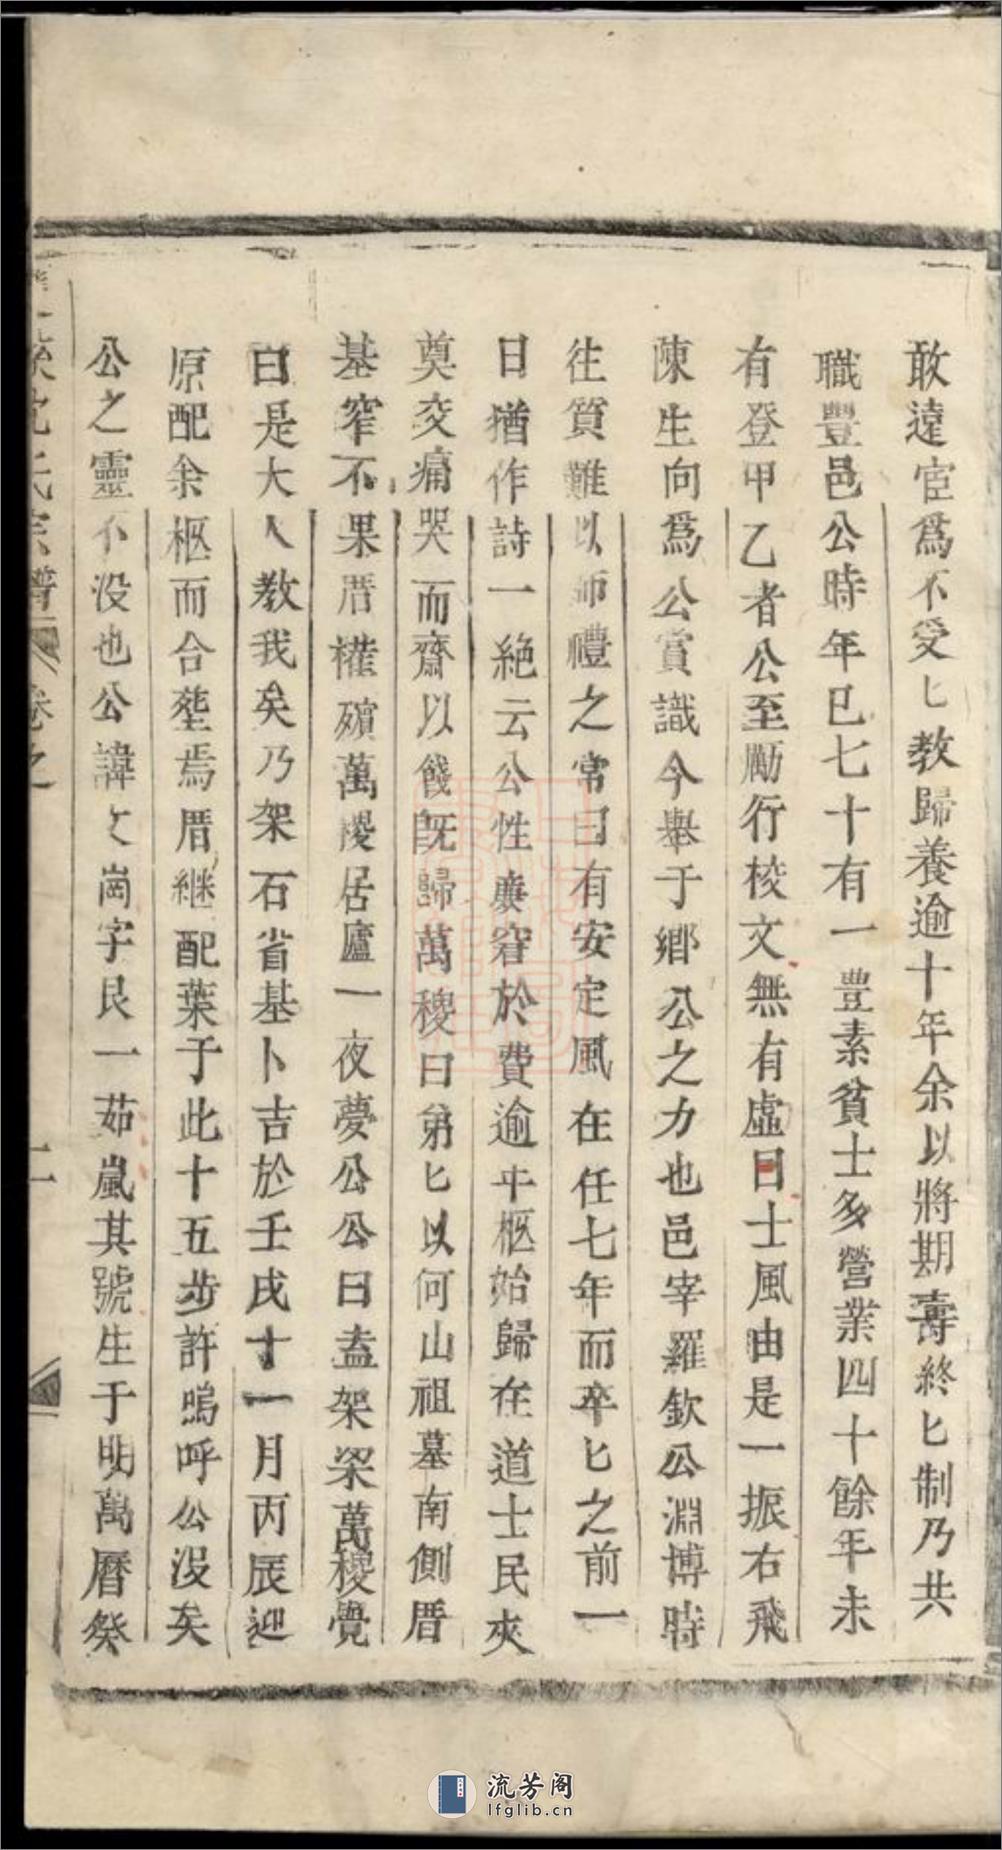 敢遠宦為不受匕教歸養逾十年余以將期壽終匕制乃共
職豐邑公時年已七十有一豊素貧士多營業四十餘年未
有登甲乙者公至勵行校文無有虛日士風由是一振右飛
陳生向爲公賞識今舉于鄉公之力也邑宰羅欽公淵博時
徃質難以師禮之常曰有安定風在任七年而卒匕之前一
日猶作詩一絶云公性廉窘於費逾年柩始歸在道士民夾
奠交痛哭而齋以餞旣歸萬稷曰弟匕以何山祖墓南側厝
基窄不果厝權殯萬稷居廬一夜夢公公曰盍架梁萬稷覺
曰是大人教我矣乃架石省基卜吉於壬戌十一月丙辰迎
原配余柩而合塟焉厝継配葉于此十五步許嗚呼公没矣
公之靈不没也公諱文崗字艮一茹嵐其號生于明萬曆癸
沈氏宗譜 卷之 二
流芳阁
lfglib.cn